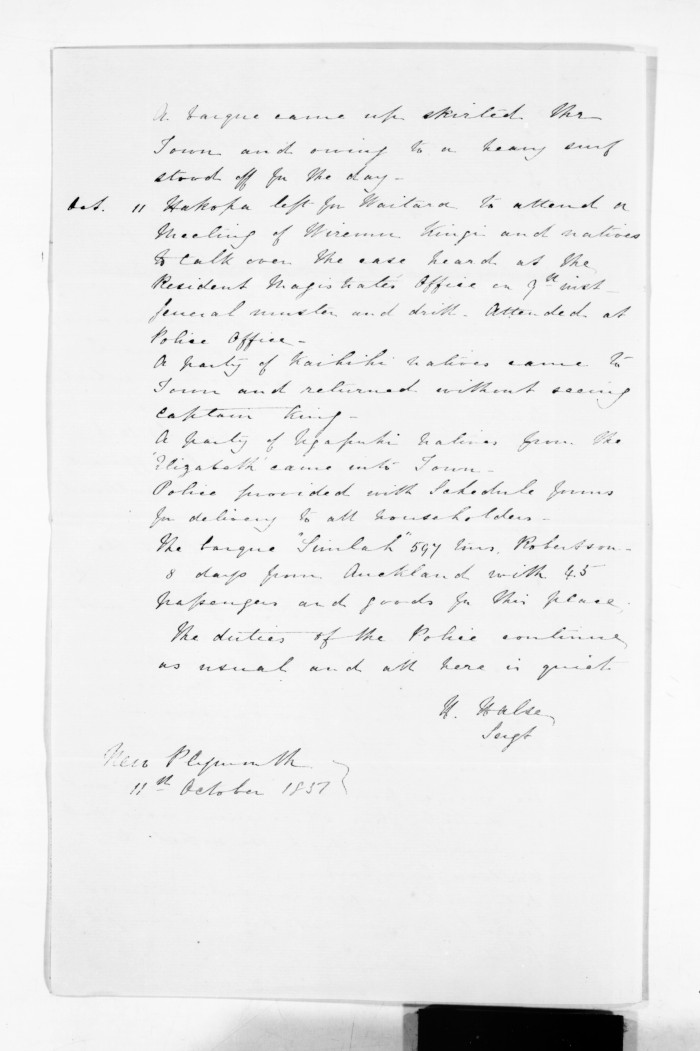 A barque came up skirted the
Town and owing to a heavy surf
stood off for the day -
Oct. 11 Hakopa left for Waitara to attend a
Meeting of Wiremu Kingi and natives
to talk over the case heard at the
Resident Magistrate's Office on 7th inst -
General muster and drill. Attended at
Police Office -
A party of Kaihihi natives came to
Town and returned without seeing
Captain King -
A party of Ngapuhi natives from the
"Elizabeth" came into Town -
Police provided with Schedule forms
for delivery to all householders -
The barque "Simlah" 597 tons, Robertson -
8 days from Auckland with 45
passengers and goods for this place.
The duties of the Police continue
as usual and all here is quiet
H. Halse
Sergt
New Plymouth
11th October 1851